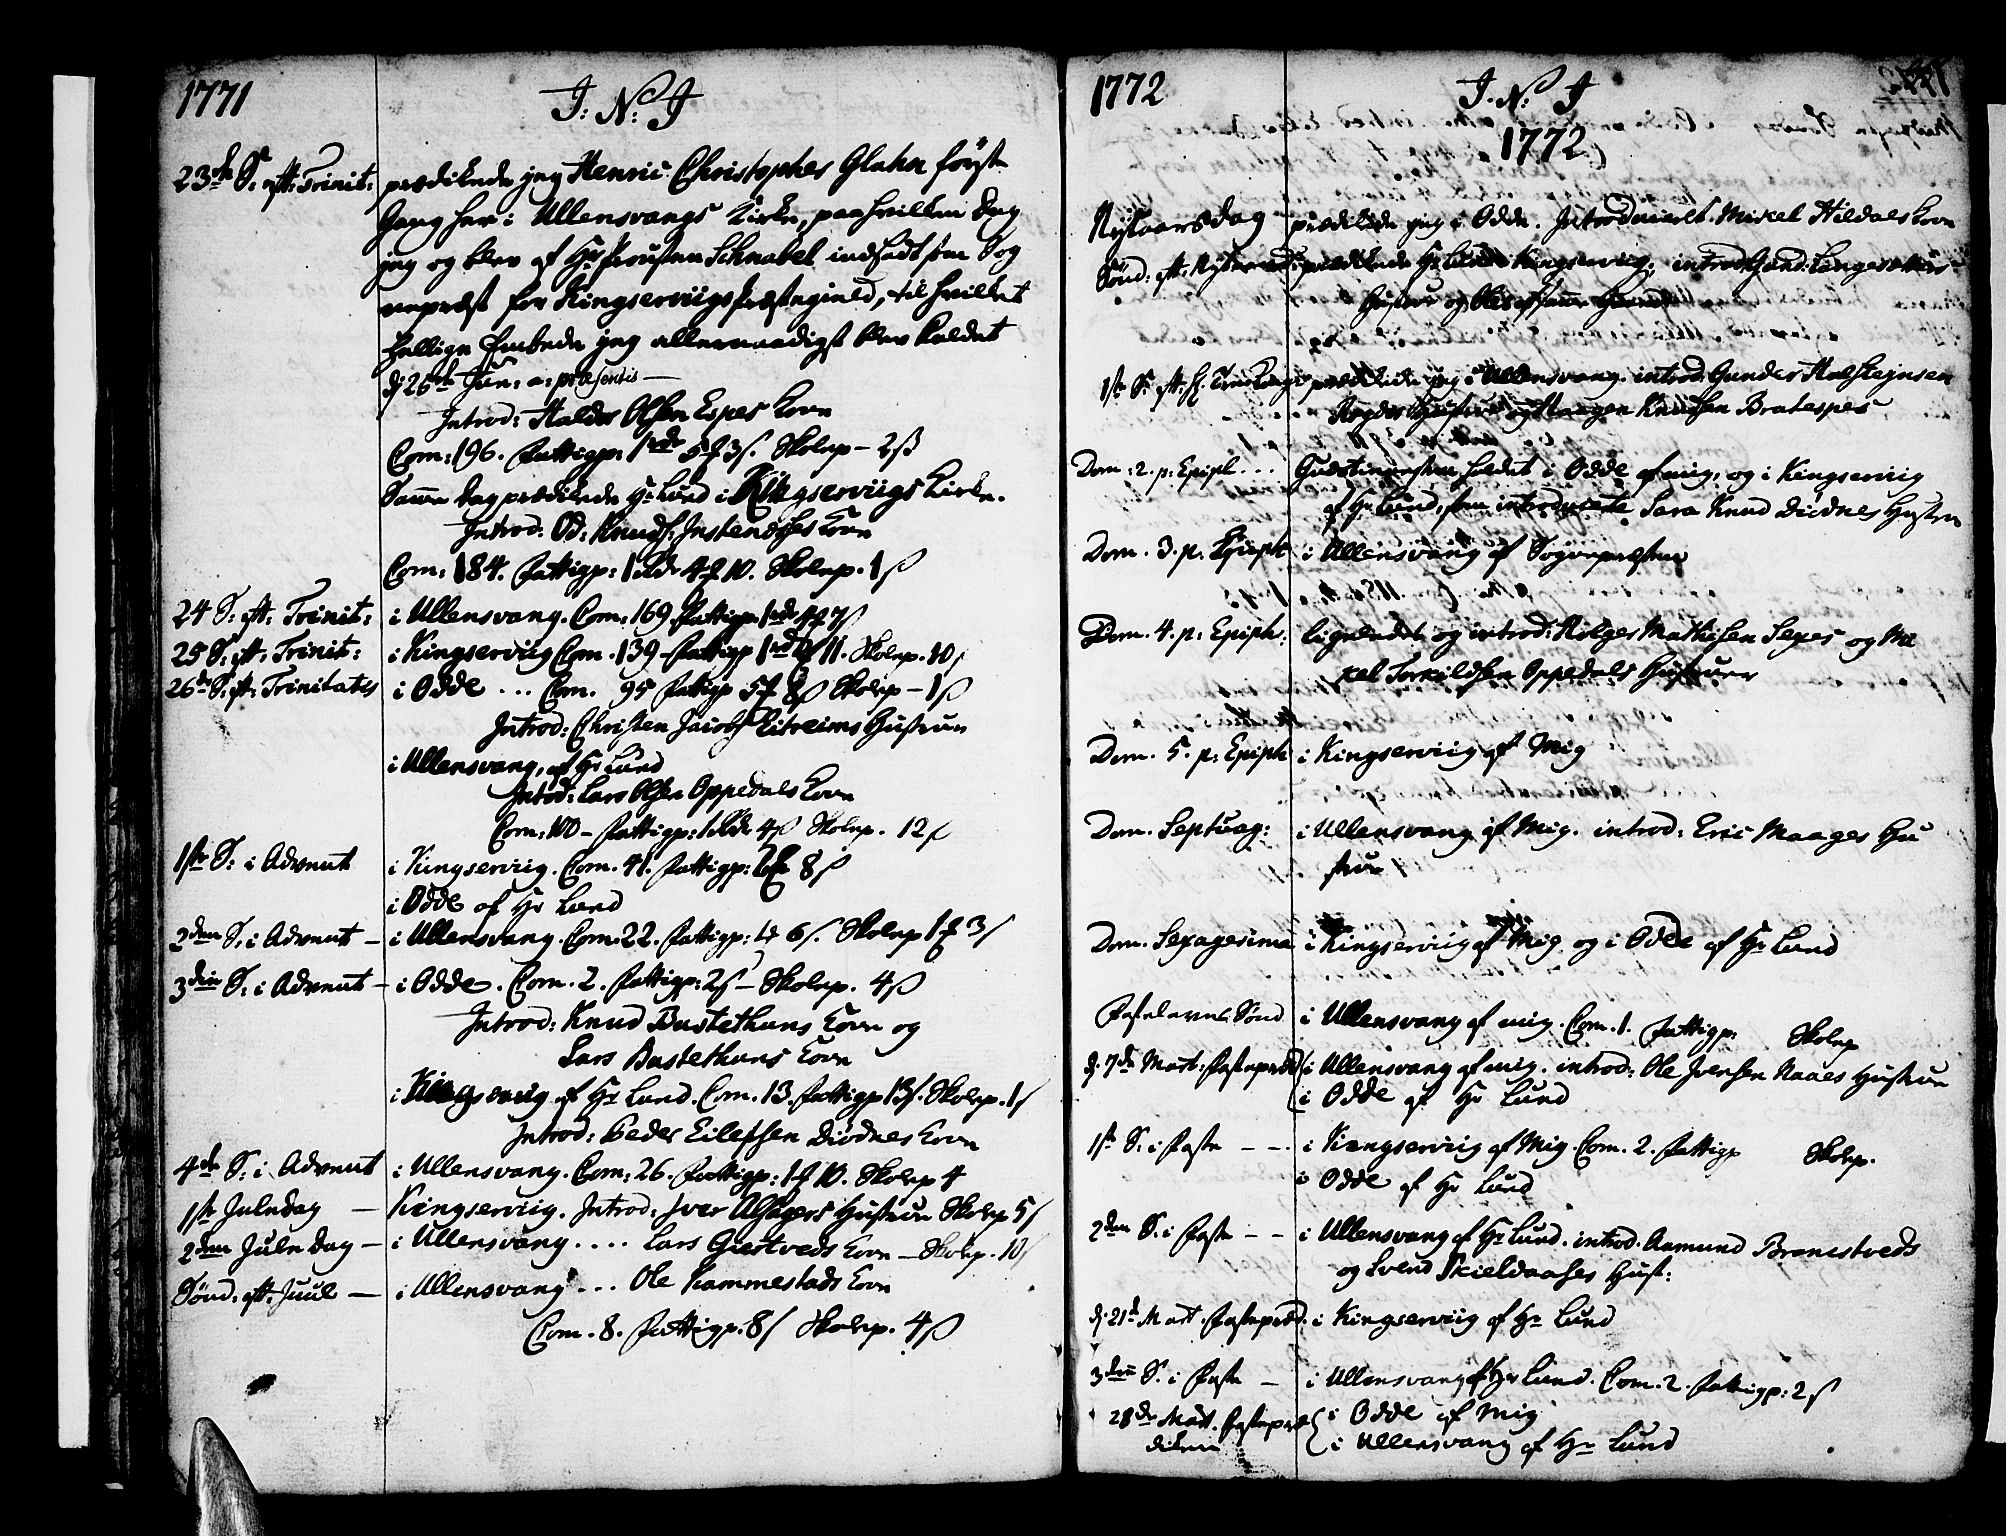 1771
J: N: J
23de S: eft: Trinit: prædikede jeg Henric Christopher Glahn første
Gang her i Ullensvangs Kirke, paa hvilken Dag
jeg og blev af Hr Prousten Schnabel indsadt som Sog
nepræst for Kingserviigs Præstegield, til hvilket
hellige Embede jeg allernaadigst blev kaldet
d: 26de Jun: a: præsentis —
Introd: Haldor Olsen Espes Kone
Com: 196. Fattigp: 1rdr 5 3s. Skolep — 2ß
Samme Dag prædikede Hr Lund i Kingserviigs Kirke.
Introd: Od: Knuds: Instenæses Kone
Com: 184. Fattigp: 1rdr 4 10. Skolep. 1ß
24 S: eft: Trinit: i Ullensvang. Com: 169 Fattigp 1rdr 4 7ß
25 S: eft: Trinit: i Kingserviig Com. 139 Fattigp 1rdr 11. Skolep. 10s
26de S: eft: Trinitates i Odde ... Com. 95 Fattigp 5 8ß Skolep — 1ß
Introd: Christen Jacobs Eitreims Hustrue
i Ullensvang, af Hr Lund
Introd: Lars Olsen Oppedals Kone
Com: 100 — Fattigp: 4ß Skolep. 12s
1ste S: i Advent i Kingserviig. Com. 41. Fattigp: 8ß
i Odde af Hr Lund
2den S. i Advent — i Ullensvang. Com. 22. Fattigp: 6s. Skolep 1 3s
3die S: i Advent — i Odde. Com. 2. Fattigp: 2s — Skolep. 4ß
Introd: Knud Bustethuns Kone og
Lars Bustethuns Kone
i Kingserviig af Hr Lund. Com. 13. Fattigp 13s. Skolep. 1s
Introd: Peder Eilefsen Diødnes Kone
4de S: i Advent i Ullensvang. Com: 26. Fattigp: 1 10. Skolep 4
1ste Juledag — Kingserviig. Introd: Iver Alsagers Hustrue Skolep 5s
2den Juledag — i Ullensvang .... Lars Giestveds Kone — Skolep. 10s
Sønd: eft: Juul — i Ullensvang ... Ole Hammestads Kone
Com. 8. Fattigp. 8s Skolep. 4ß
1772
J. N: J
1772
Nytaarsdag prædikede jeg i Odde. Introducerede Mikel Hildals Kone
Sønd: eft: Nytaar prædikede Hr Lund i Kingserviig. introd
Hustrue og
1ste S. eft. H. 3 Konger prædikede jeg i Ullensvang. introd: Gunder Halsteinsen
Hustrue og Haagen Knudsen Bratespes
Dom: 2. p: Epiph ... holdet i Odde af mig, og i Kingserviig
af Hr Lund, som introducerte Sara Knud Diødnes Hustru
Dom. 3. p. Epiph i Ullensvang af Sognepræsten
Dom. 4. p: Epiph: ligeledes og introd: Helges Mathisen Sexes og Mi
kel Torkildsen Oppedals Hustruer
Dom. 5. p: Epiph i Kingserviig af Mig
Dom. Septuag: i Ullensvang af Mig. introd: Eric Maages Hu
strue
Dom. Sexagesima i Kingserviig af Mig og i Odde af Hr Lund
Fastelavns Sønd i Ullensvang af mig. Com. 1. Fattigp. Skolep
d. 7de Mart: Fasteprædk i Ullensvang af mig. introd: Ole Iversen Naaes Hustrue
i Odde af Hr Lund
1ste S. i Faste — — i Kingserviig af Mig. Com. 2. Fattigp Skolep.
i Odde af Hr Lund
2den S. i Faste — — i Ullensvang af Hr Lund. introd. Aamund Tronestveds
og Svend Skieldaases Hust:
d: 21de Mart. Fastepræd. i Kingserviig af Hr Lund
3die S. i Faste — i Ullensvang af Hr Lund. Com. 2. Fattigp: 2s
28de Mart. Fastepræ i Odde af Mig
diken i Ullensvang af Hr Lund